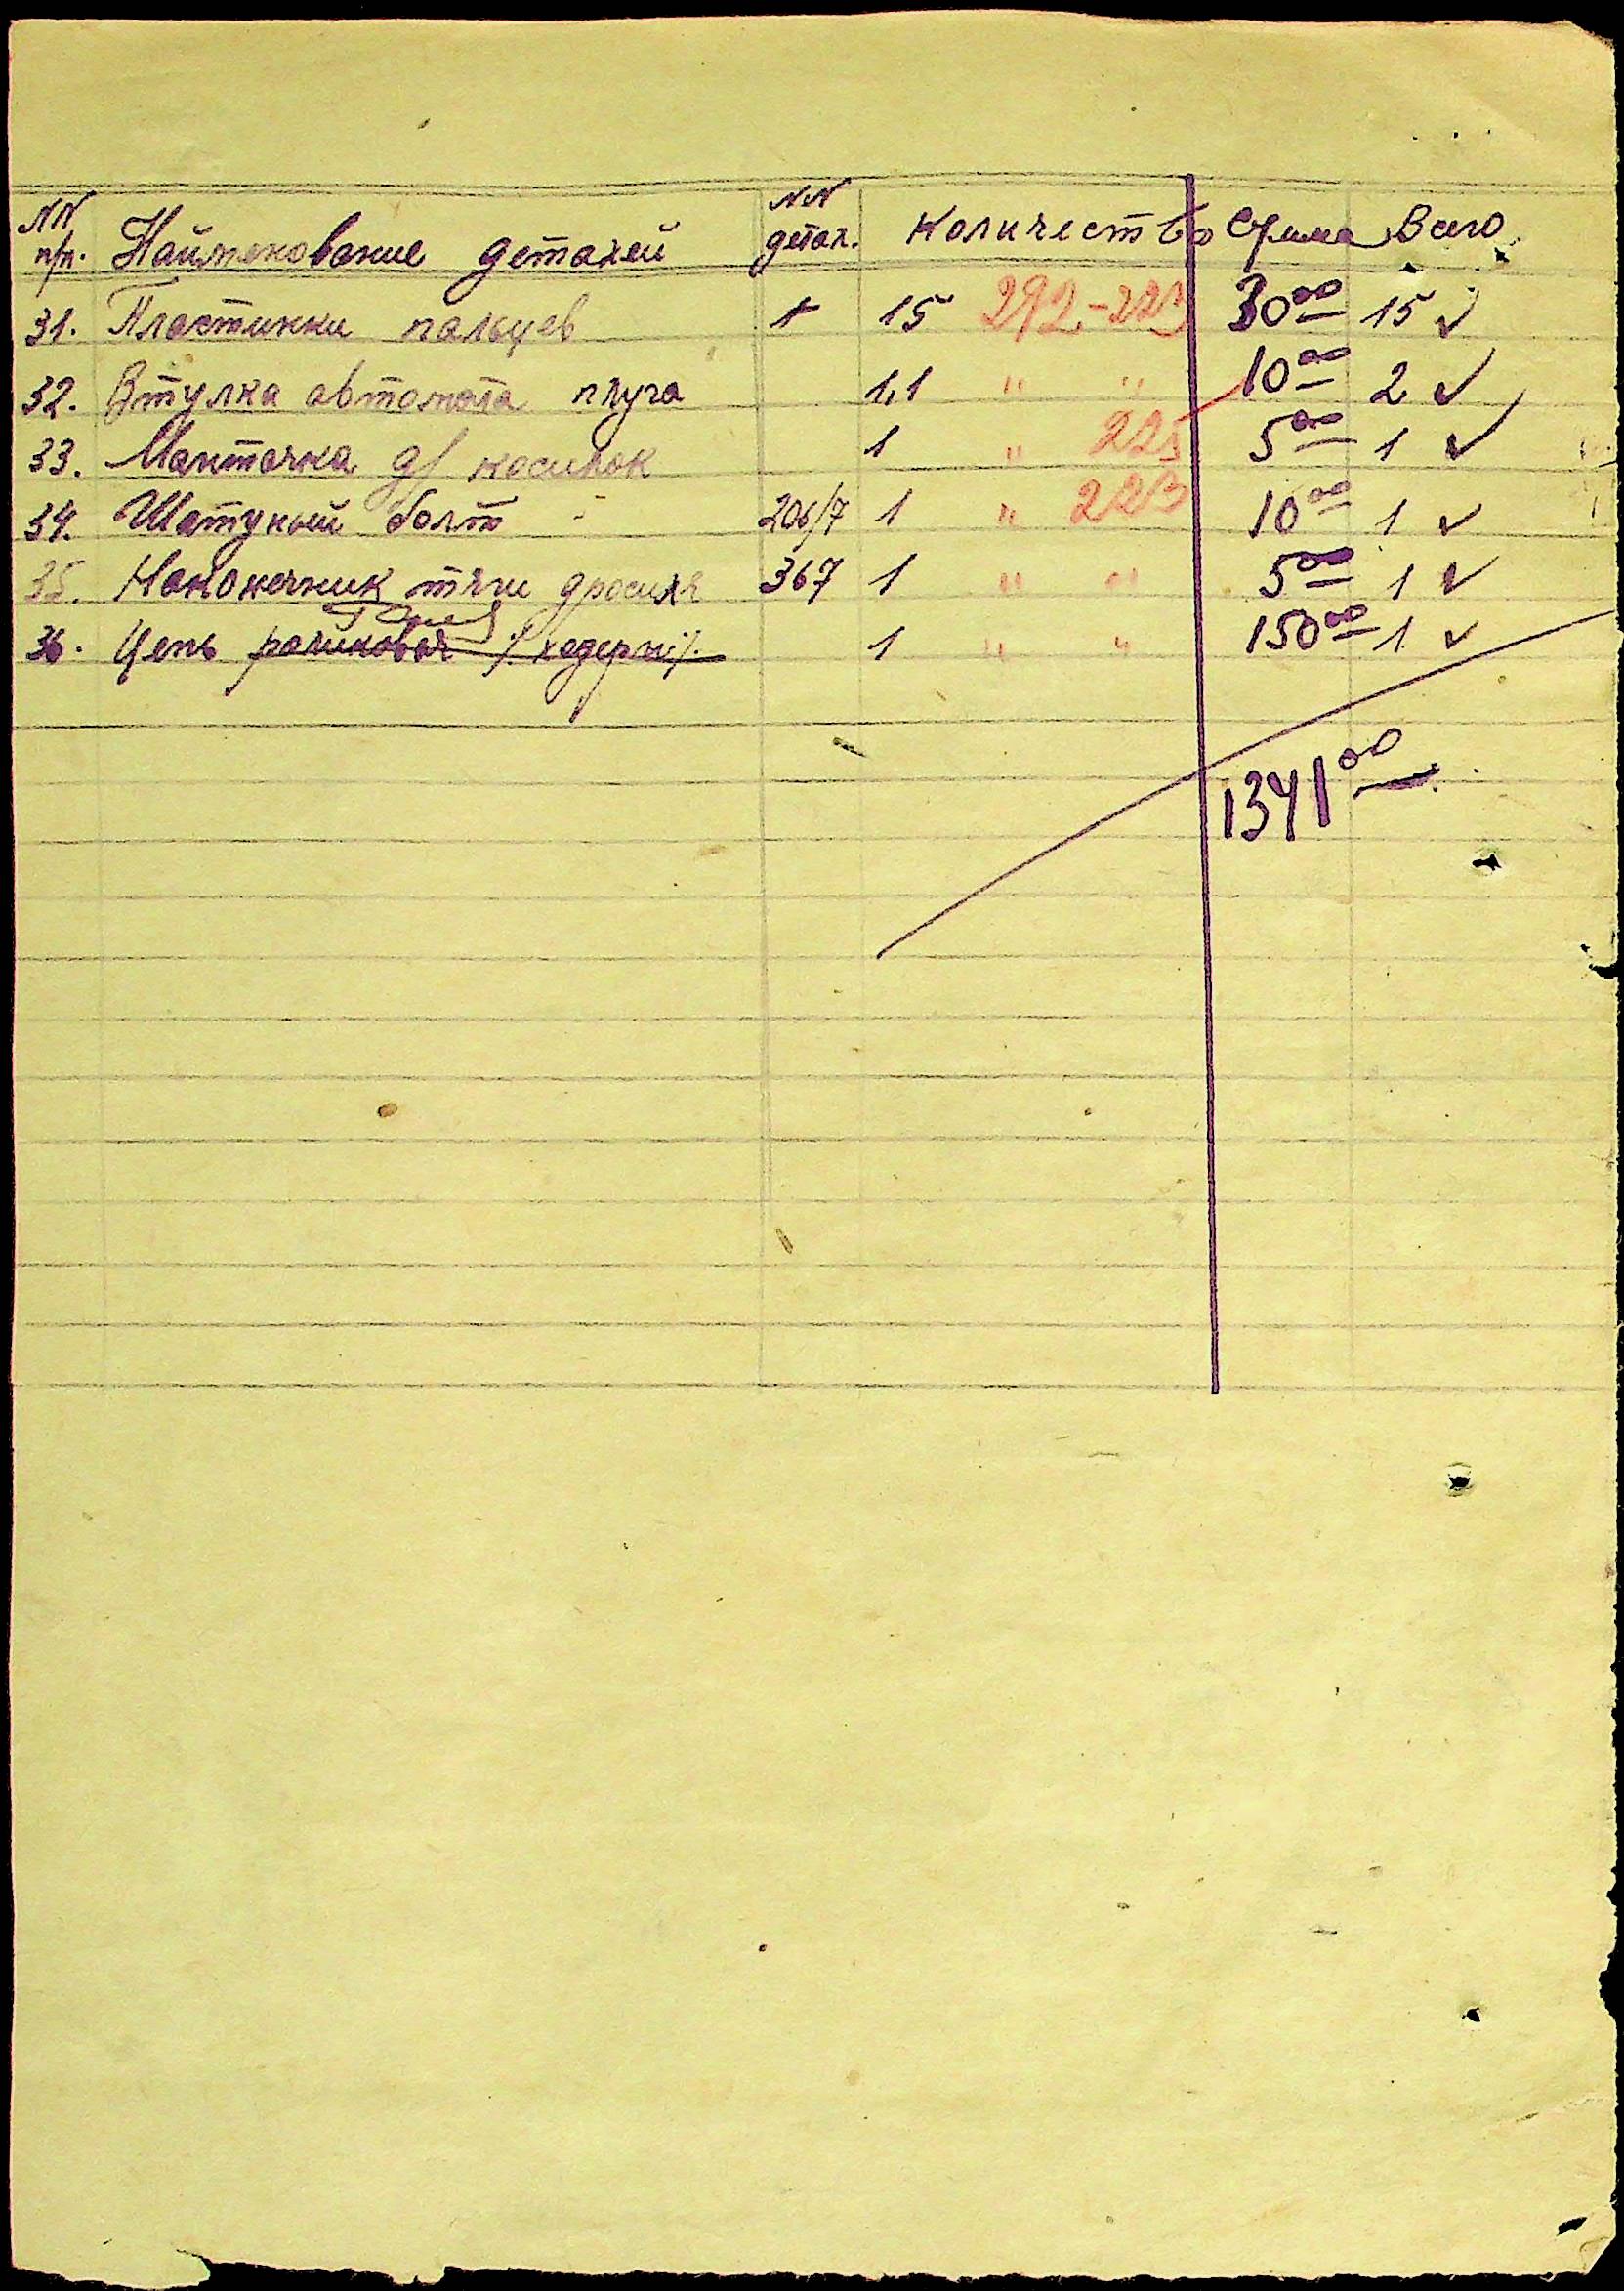 NN п/п. Найменование деталей NN детал. Количество Сумма Всего
31. Пластинки пальцев 15 292-223 30 00 15 ✓
32. Втулка автомата плуга 1,1 " " 10 00 2 ✓
33. д/ косилок 1 " 225 5 00 1 ✓
34. Шатуный болт - 206/7 1 " 223 10 00 1 ✓
35. Наконечник тяги дроселя 367 1 " " 5 00 1 ✓
36. Цепь роликовая /.хедерн./. 1 " " 150 00 1 ✓
1341 00